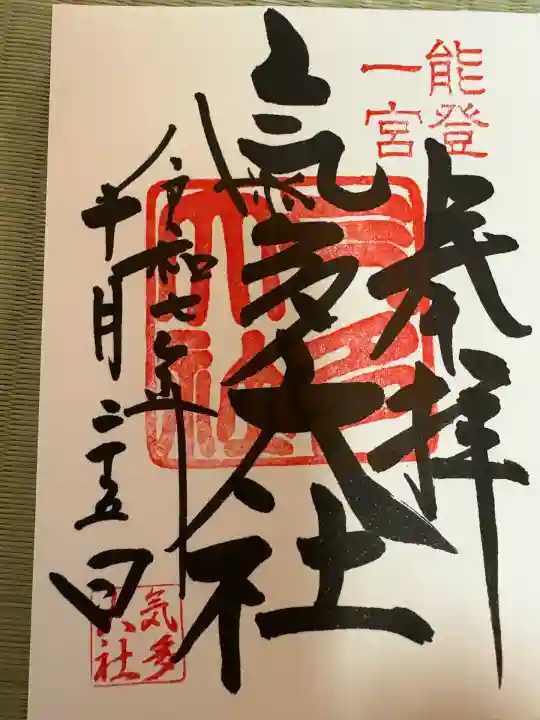 能登
一宮
奉拝
氣多大社
令和七年
十月二十五日
氣多大社
気多
大社